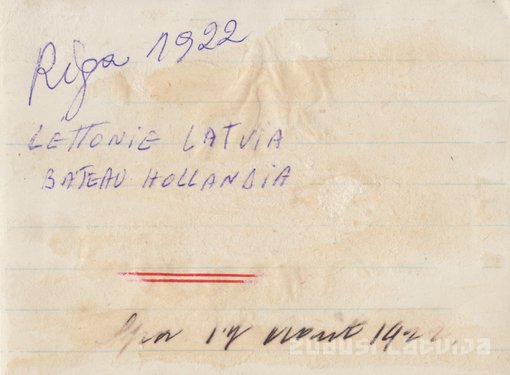 Riga 1922
LETTONIE LATVIA
BATEAU HOLLANDIA
17 Août 1922.
zudusilatvija